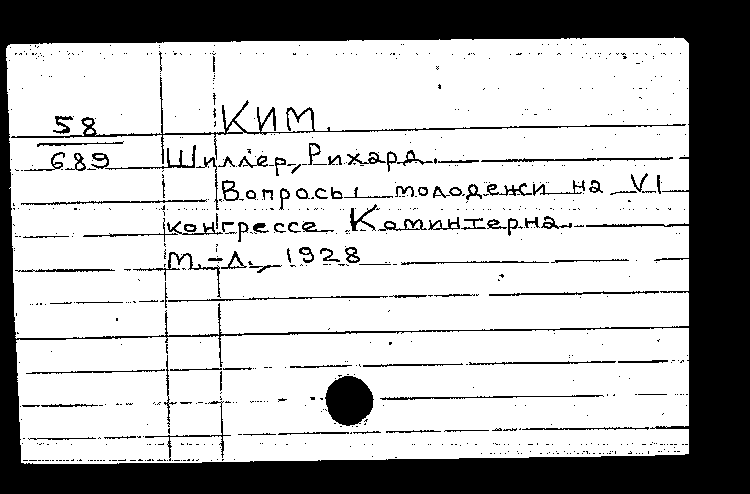 58
689
КИМ.
Шиллер, Рихард.
Вопросы молодежи на VI
конгрессе Коминтерна.
М.-Л., 1928